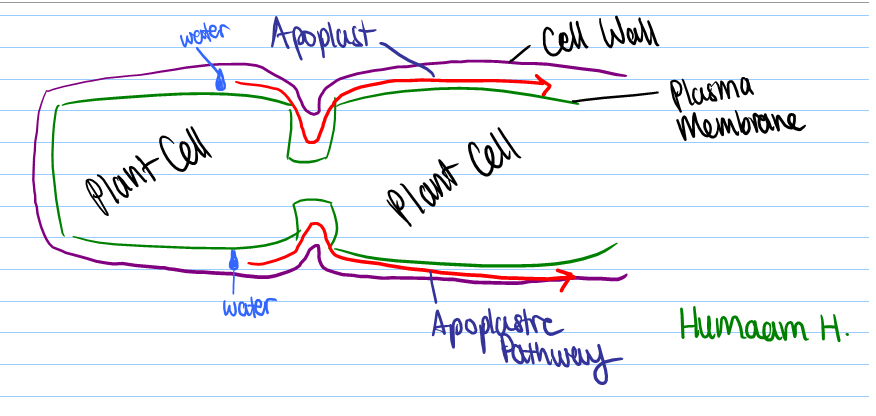 water
Apoplast
Cell Wall
Plasma
Membrane
Plant Cell
Plant Cell
water
Apoplastic
Pathway
Humaam H.